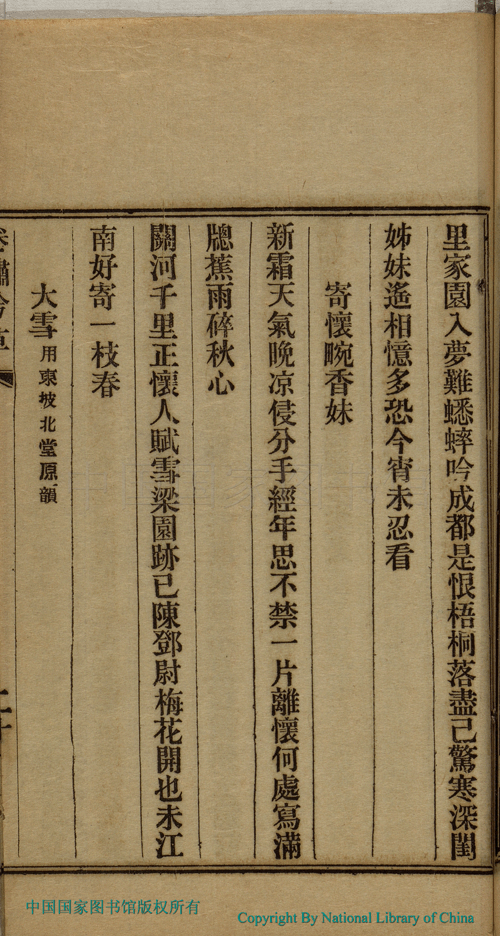 里家園入夢難蟋蟀吟成都是恨梧桐落盡己驚寒深閨
姊妹遙相憶多恐今宵未忍看
寄懷畹香妹
新霜天氣晚凉侵分手經年思不禁一片離懷何處寫滿
牕蕉雨碎秋心
關河千里正懷人賦雪梁園跡已陳鄧尉梅花開也未江
南好寄一枝春
大雪用東坡北堂原韻
中国国家图书馆版权所有
Copyright By National Library of China